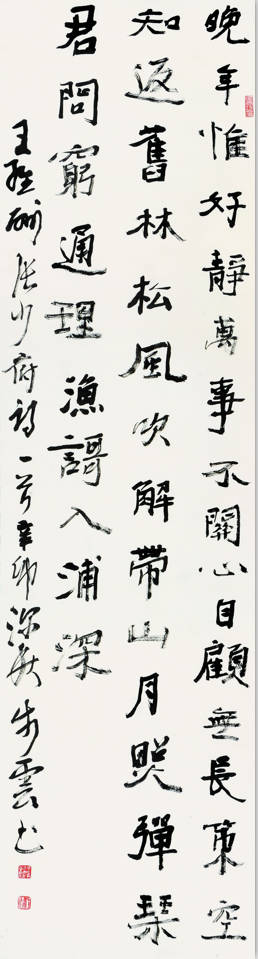 晚年惟好靜萬事不關心自顧無長策空
知返舊林松風吹解帶山月照彈琴
君問窮通理漁謌入浦深
王維酬張少府詩一首辛卯深秋步雲書